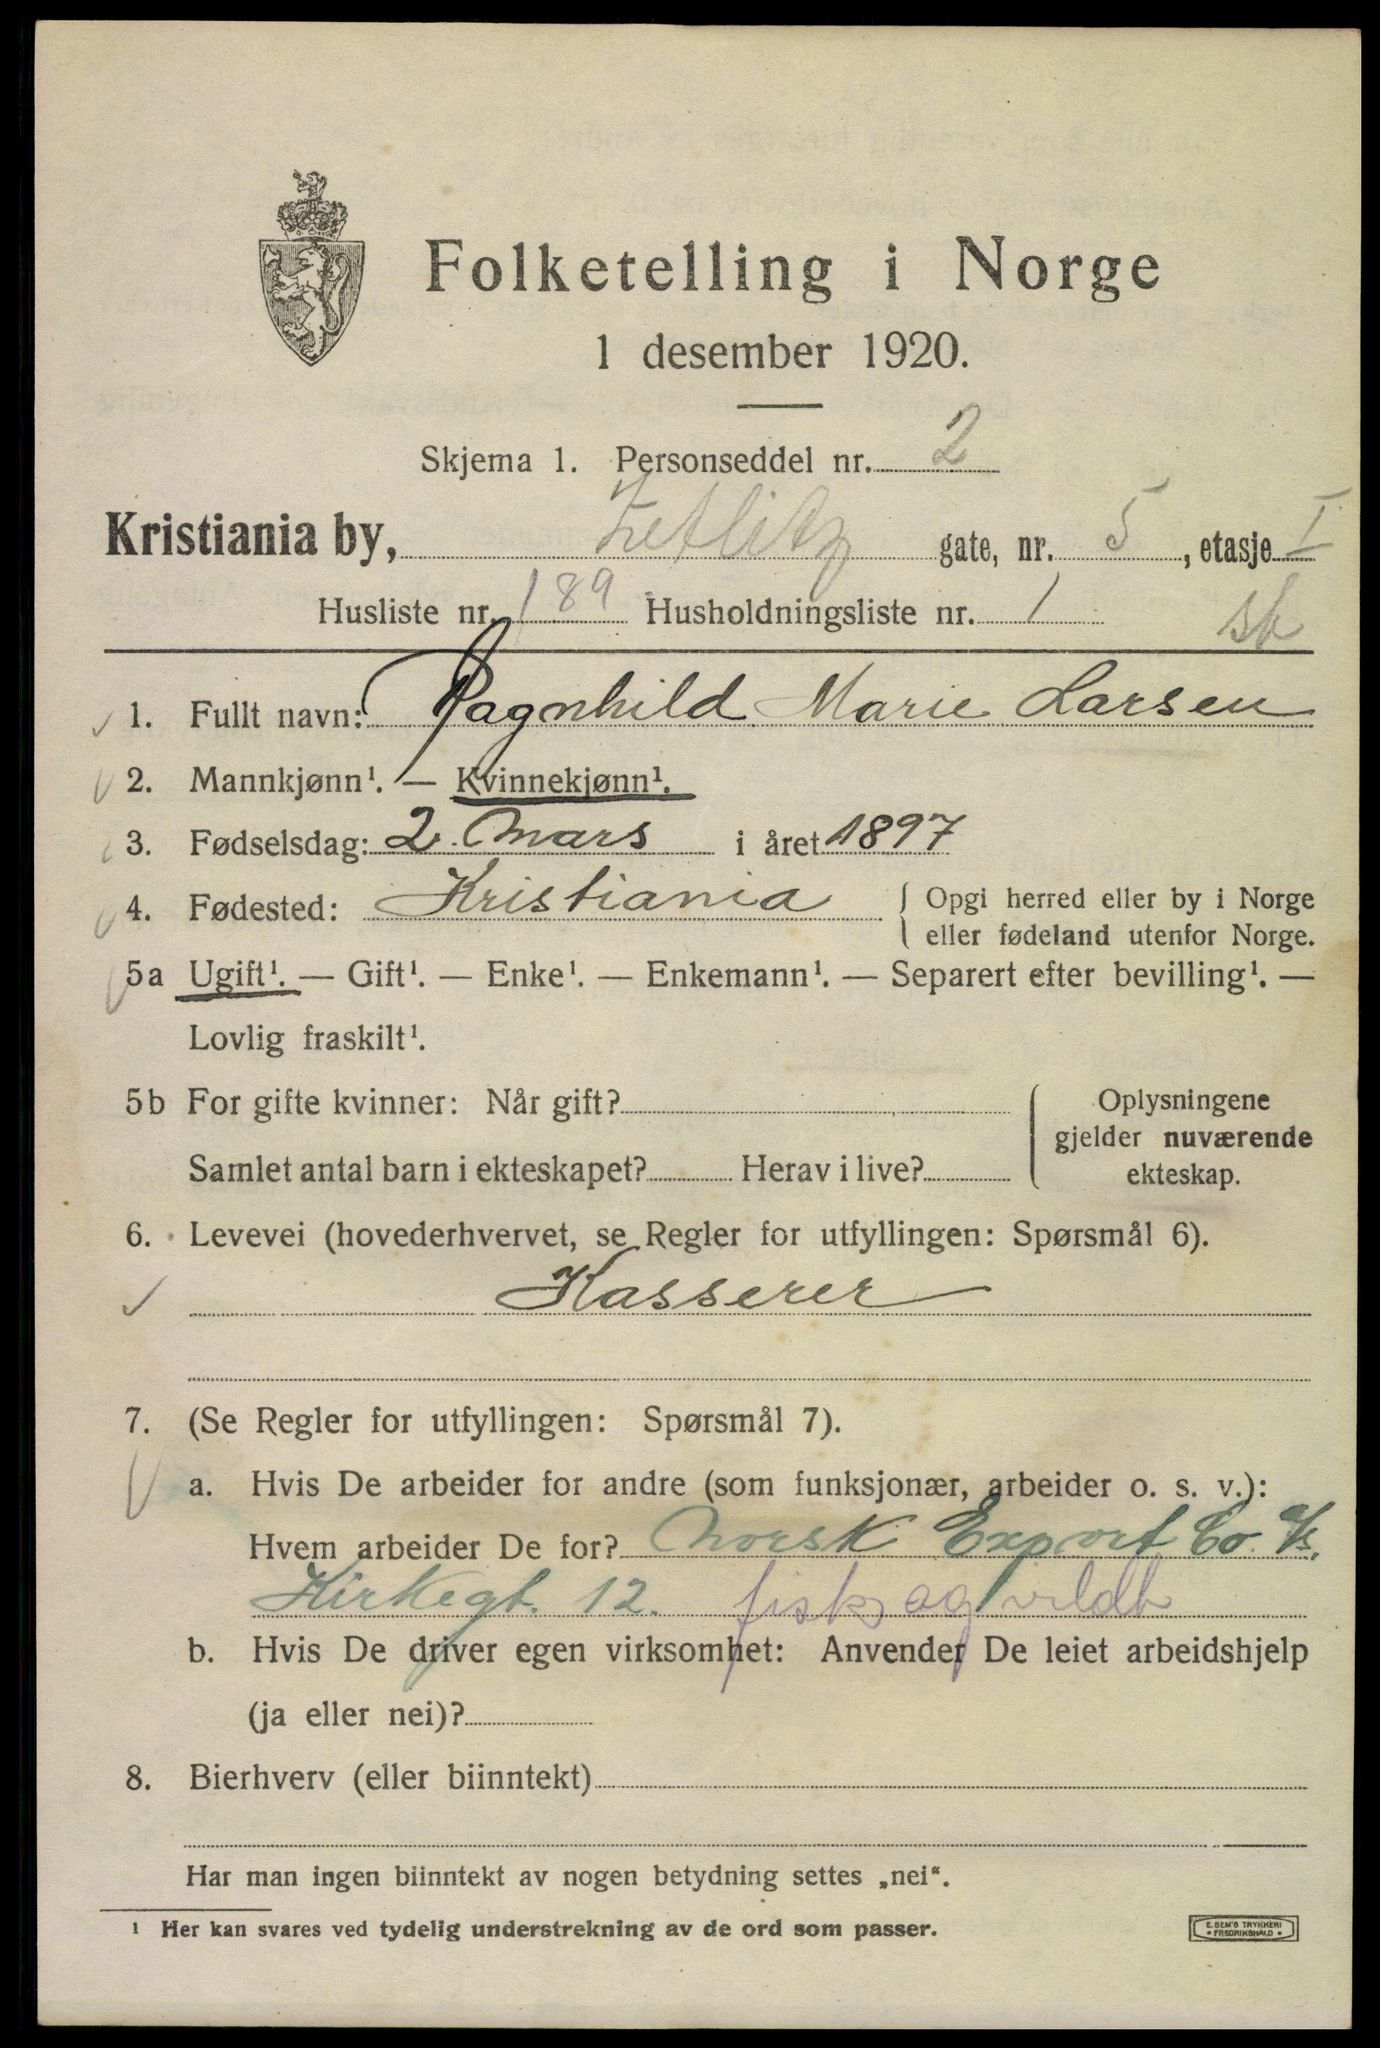 Folketelling i Norge
1 desember 1920.
Skjema 1. Personseddel nr. 2
Kristiania by, Zetlitz gate, nr. 5, etasje I
Husliste nr. 189 Husholdningsliste nr. 1
1. Fullt navn: Ragnhild Marie Larsen
2. Mannkjønn¹. — Kvinnekjønn¹.
3. Fødselsdag: 2. Mars i året 1897
4. Fødested: Kristiania { Opgi herred eller by i Norge
eller fødeland utenfor Norge.
5a Ugift¹. — Gift¹. — Enke¹. — Enkemann¹. — Separert efter bevilling¹. —
Lovlig fraskilt¹.
5b For gifte kvinner: Når gift? { Oplysningene
gjelder nuværende
Samlet antal barn i ekteskapet? Herav i live? ekteskap.
6. Levevei (hovederhvervet, se Regler for utfyllingen: Spørsmål 6).
Kasserer
7. (Se Regler for utfyllingen: Spørsmål 7).
a. Hvis De arbeider for andre (som funksjonær, arbeider o. s. v.):
Hvem arbeider De for? Norsk Export Co. A/s.
Kirkegt. 12. fisk og vildt
b. Hvis De driver egen virksomhet: Anvender De leiet arbeidshjelp
(ja eller nei)?
8. Bierhverv (eller biinntekt)
Har man ingen biinntekt av nogen betydning settes „nei“.
¹ Her kan svares ved tydelig understrekning av de ord som passer.
E. SEM'S TRYKKERI
• FREDRIKSHALD •